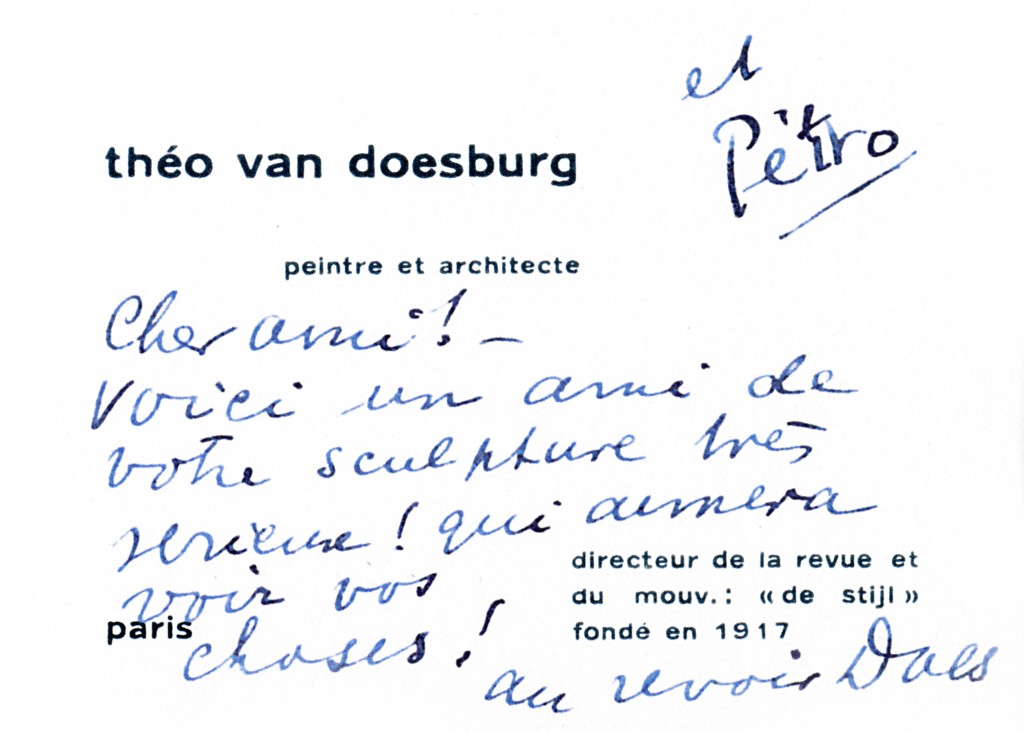 et
Pétro
théo van doesburg
peintre et architecte
Cher ami! —
Voici un ami de
votre sculpture très
serieuse! qui aimera
voir vos
choses!
directeur de la revue et
du mouv.: «de stijl»
fondé en 1917
paris
au revoir Does